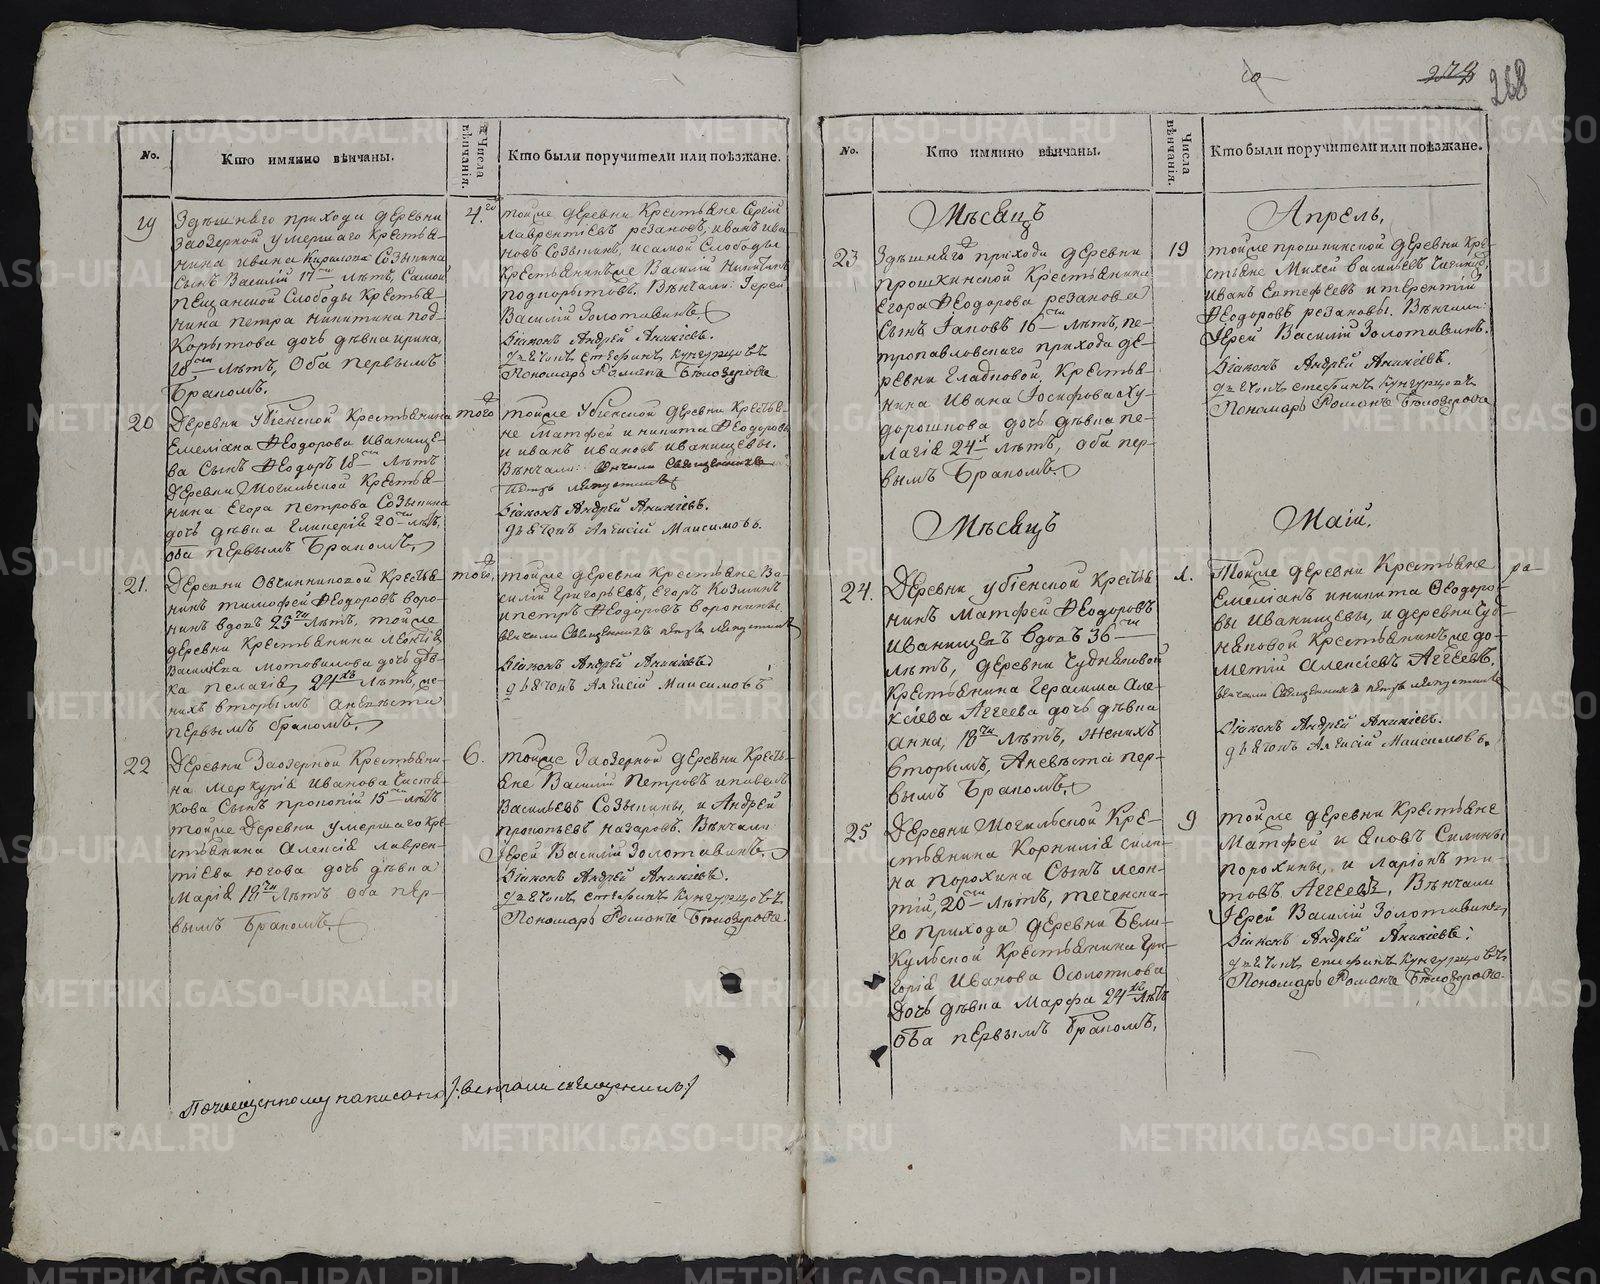 268
No.
Кто имянно вѣнчаны.
Числа вѣнчанія.
Кто были поручители или поѣзжане.
19
Здѣшняго прихода деревни
Заозерной умершаго крестья-
нина Ивана Созыкина
сынъ Василій 17 лѣтъ, самой
Песчанской слободы крестья-
нина Петра Никитина под-
корытова дочь дѣвка Ирина,
18 лѣтъ, оба первымъ
бракомъ.
4.го
тойже деревни крестьяне Сергій
Лаврентіевъ Резановъ, Иванъ Ива
новъ Созыкинъ, и самой слободы
крестьянинъже Василій Никитинъ
подкорытовъ. Вѣнчали: Іерей
Василій Золотавинъ.
Діаконъ Андрей Аникіевъ.
дьячокъ Стефанъ Кунгурцовъ
Пономарь Романъ Бѣлозеровъ
20
Деревни Убіенской крестьянина
Емеліана Ѳеодорова Иванище-
ва сынъ Ѳеодоръ 18 лѣтъ
деревни Могильской крестья-
нина Егора Петрова Созыкина
дочь дѣвка Гликерія 20 лѣтъ,
оба первымъ бракомъ,
того
тойже Убіенской деревни крестья-
не Матфей и Никита Ѳеодоровы
и Иванъ Ивановъ Иванищевы.
Вѣнчали:
Діаконъ Андрей Аникіевъ.
дьячокъ Алексій Максимовъ.
21.
Деревни Овчинниковой крестья-
нинъ Тимофей Ѳеодоровъ Воро-
нинъ вдовъ 25 лѣтъ, тойже
деревни крестьянина Леонтія
Василіева Мотовилова дочь дѣв-
ка Пелагія 24 лѣтъ, же-
нихъ вторымъ а невѣста
первымъ бракомъ.
того
тойже деревни крестьяне Ва-
силій Григорьевъ, Егоръ Козминъ
и Петръ Ѳеодоровъ Воронины
вѣнчали священникъ Петръ
Діаконъ Андрей Аникіевъ
дьячокъ Алексій Максимовъ
22
Деревни Заозерной крестьяни-
на Меркурія Иванова Чистя-
кова сынъ Прокопій 15 лѣтъ
тойже деревни умершаго кре-
стьянина Алексія Лаврен-
тіева Югова дочь дѣвка
Марія 19 лѣтъ оба пер-
вымъ бракомъ.
6.
тойже Заозерной деревни кресть-
яне Василій Петровъ и Павелъ
Васильевъ Созыкины, и Андрей
Прокопьевъ Назаровъ. Вѣнчали
Іерей Василій Золотавинъ.
Діаконъ Андрей Аникіевъ.
дьячокъ Стефанъ Кунгурцовъ
Пономарь Романъ Бѣлозеровъ
No.
Кто имянно вѣнчаны.
Числа вѣнчанія.
Кто были поручители или поѣзжане.
Мѣсяцъ
Апрель,
23
Здѣшняго прихода деревни
Прошкинской крестьянина
Егора Ѳеодорова Резанова
сынъ Іаковъ 16 лѣтъ, пе-
тропавловскаго прихода де-
ревни Гладковой, крестья-
нина Ивана Іосифова Ху-
дорошкова дочь дѣвка Пе-
лагія 24 лѣтъ, оба пер-
вымъ бракомъ.
19
тойже Прошкинской деревни кре-
стьяне Михей Васильевъ
Иванъ Евтефеевъ и Терентій
Ѳеодоровъ Резановы. Вѣнчали:
Іерей Василій Золотавинъ.
Діаконъ Андрей Аникіевъ.
дьячокъ Стефанъ Кунгурцовъ
Пономарь Романъ Бѣлозеровъ
Мѣсяцъ
Маій,
24.
Деревни Убіенской крестья
нинъ Матфей Ѳеодоровъ
Иванищевъ вдовъ 36
лѣтъ, деревни Чудняковой
крестьянина Герасима Але-
ксіева Аггеева дочь дѣвка
Анна, 18 лѣтъ, женихъ
вторымъ, а невѣста пер-
вымъ бракомъ.
1.
Тойже деревни крестьяне
Емеліанъ и Никита Ѳеодоро-
вы Иванищевы, и деревни Чуд-
няковой крестьянинъже До-
метій Алексіевъ Аггеевъ,
вѣнчали священникъ Петръ
Діаконъ Андрей Аникіевъ.
дьячокъ Алексій Максимовъ.
ра-
25
Деревни Могильской кре-
стьянина Корнилія Сили-
на Порохина сынъ Леон-
тій, 20 лѣтъ, Теченска-
го прихода деревни Бели-
кульской крестьянина Гри-
горія Иванова Осолоткова
дочь дѣвка Марфа 24 лѣтъ
оба первымъ бракомъ,
9
тойже деревни крестьяне
Матфей и Яковъ Силины
Порохины, и Ларіонъ Ти-
товъ Аггеевъ, Вѣнчали
Іерей Василій Золотавинъ,
Діаконъ Андрей Аникіевъ:
дьячокъ Стефанъ Кунгурцовъ
Пономарь Романъ Бѣлозеровъ.
По чищенному написано
METRIKI.GASO-URAL.RU